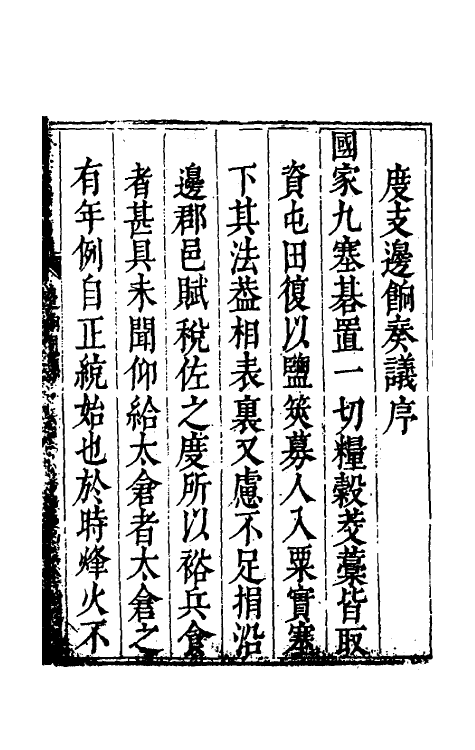 度支邊餉奏議序
國家九塞碁置一切糧穀茭藁皆取
資屯田復以鹽筴募人入粟實塞
下其法葢相表裏又慮不足捐沿
邊郡邑賦稅佐之度所以裕兵食
者甚具未聞仰給太倉者太倉之
有年例自正統始也於時烽火不